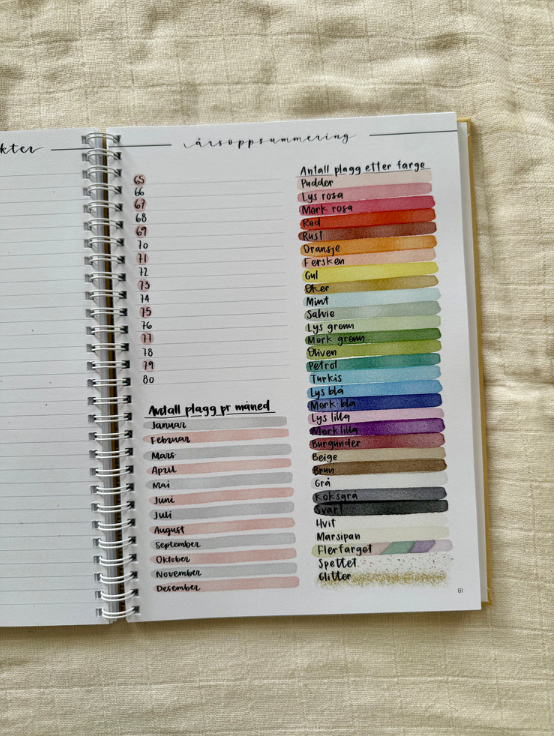 kter
årsoppsummering
65
66
67
68
69
70
71
72
73
74
75
76
77
78
79
80
Antall plagg pr måned
Januar
Februar
Mars
April
Mai
Juni
Juli
August
September
Oktober
November
Desember
Antall plagg etter farge
Pudder
Lys rosa
Mørk rosa
Rød
Rust
Oransje
Fersken
Gul
Oker
Mint
Salvie
Lys grønn
Mørk grønn
Oliven
Petrol
Turkis
Lys blå
Mørk blå
Lys lilla
Mørk lilla
Burgunder
Beige
Brun
Grå
Koksgrå
Svart
Hvit
Marsipan
Flerfarget
Spettet
Glitter
61